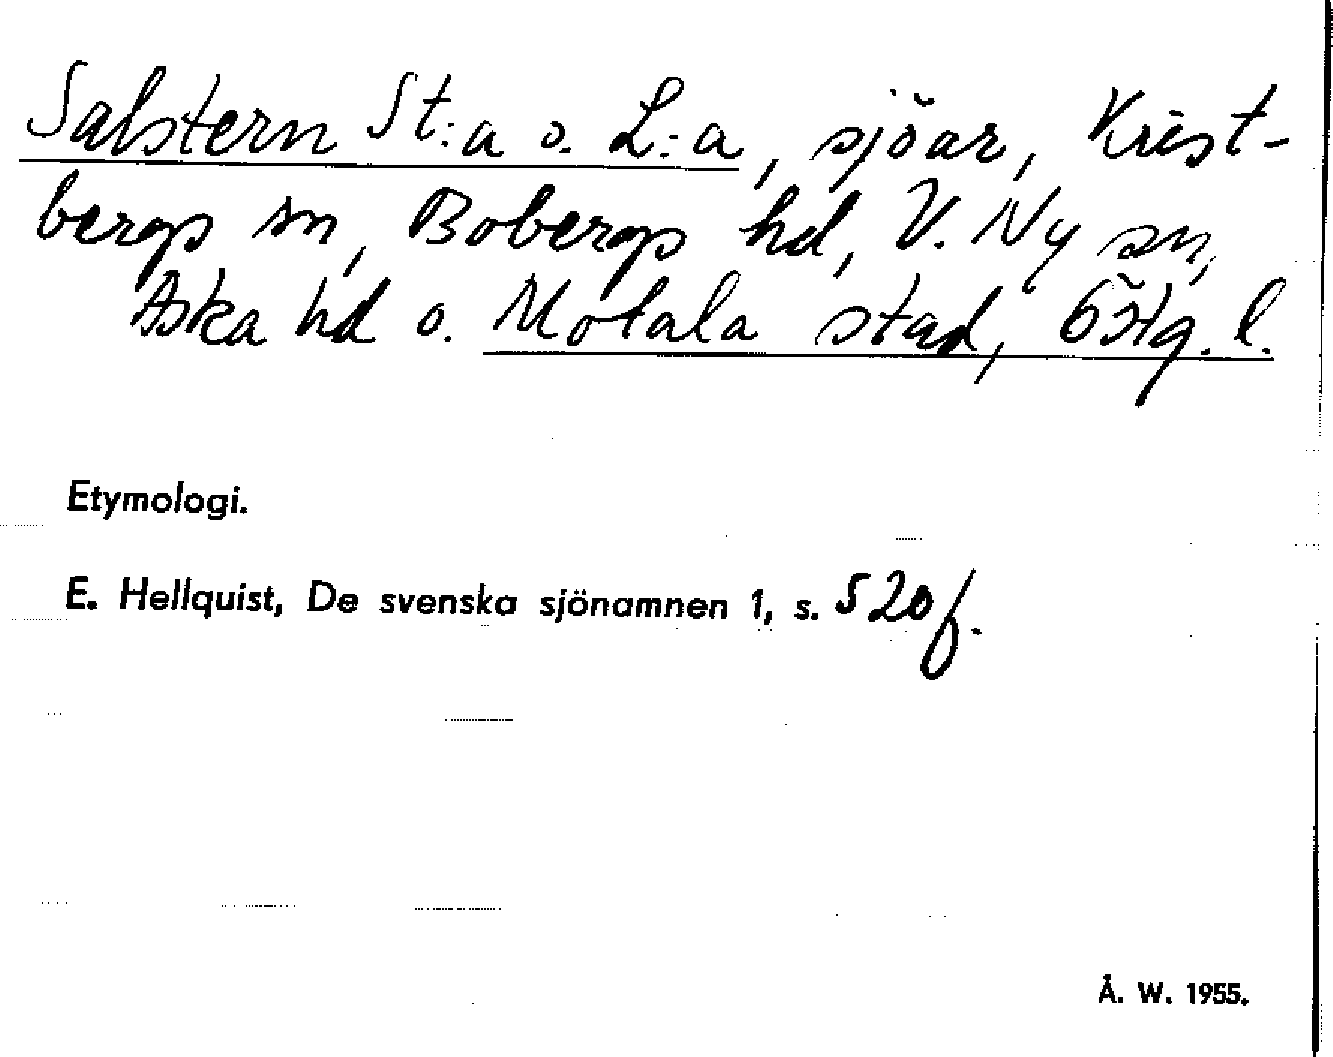 Salstern St:a o. L:a, sjöar, Krist-
bergs sn, Bobergs hd, V. Ny sn,
Aska hd o. Motala stad, Östg. l.
Etymologi.
E. Hellquist, De svenska sjönamnen 1, s. 520 f.
Å. W. 1955.